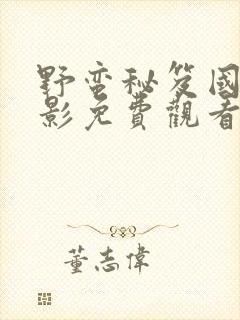 野蛮秘笈國
影免費觀看
董志偉